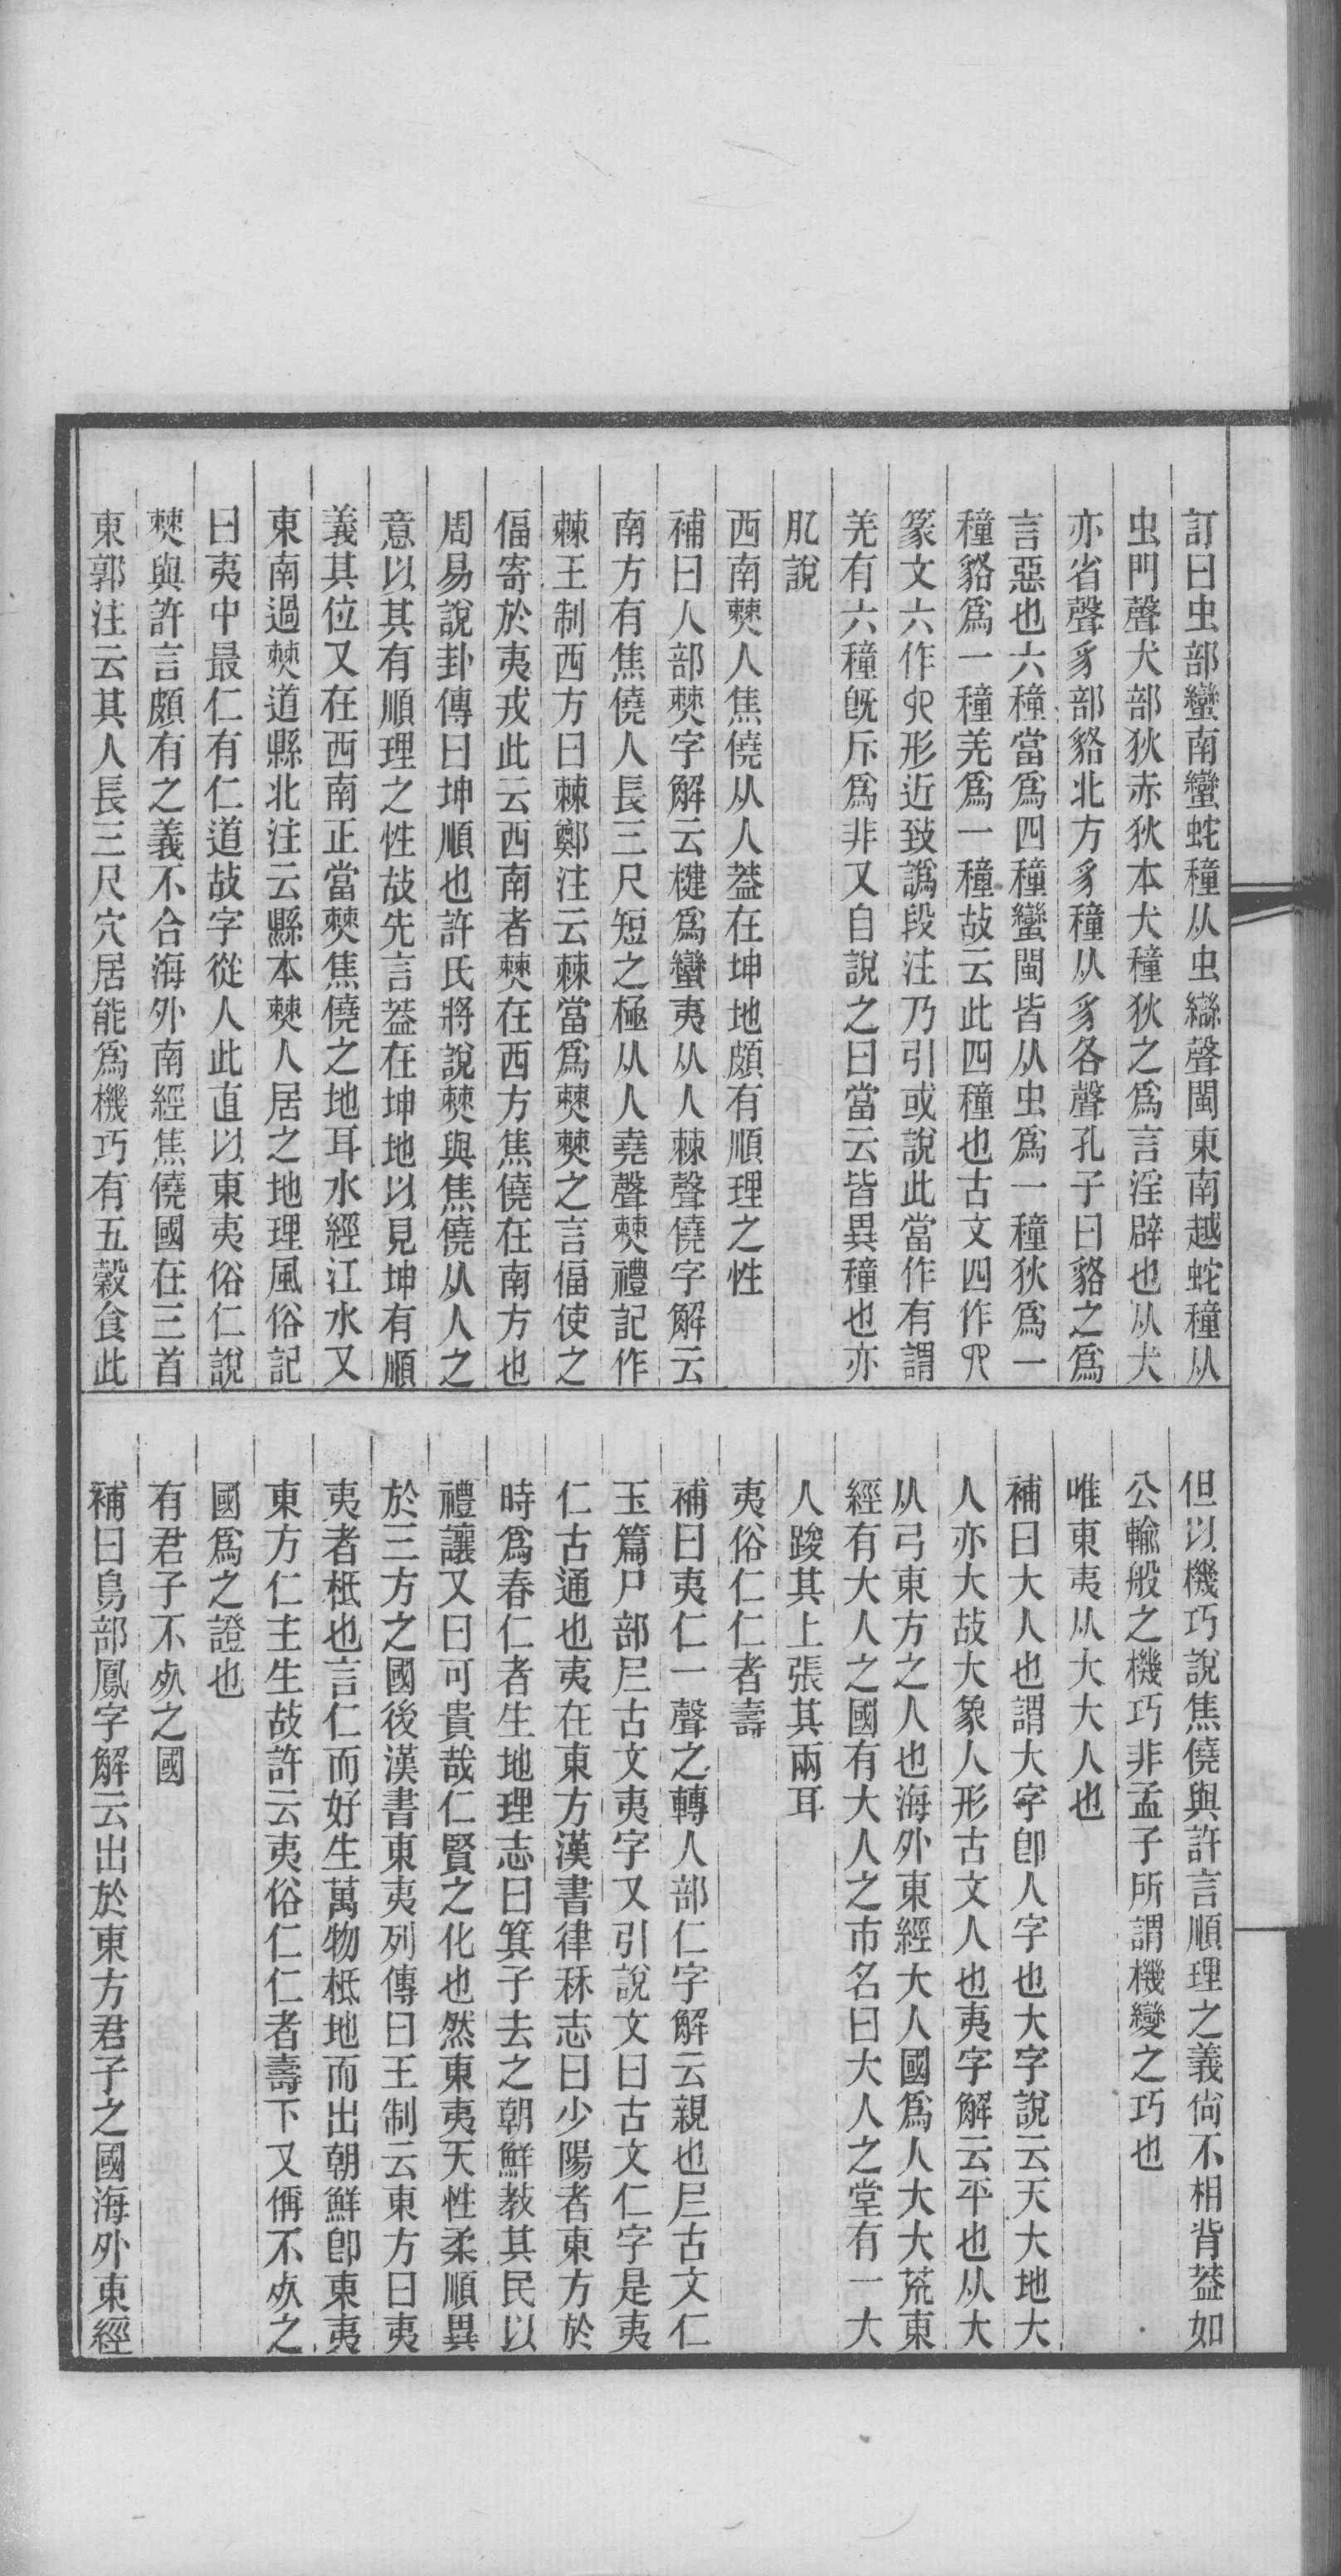 訂曰虫部蠻南蠻蛇穜从虫䜌聲閩東南越蛇穜从
虫門聲犬部狄赤狄本犬穜狄之爲言淫辟也从犬
亦省聲豸部貉北方豸穜从豸各聲孔子曰貉之爲
言惡也六穜當爲四穜蠻閩皆从虫爲一穜狄爲一
穜貉爲一穜羌爲一穜故云此四穜也古文四作𦉭
篆文六作形近致譌段注乃引或說此當作有謂
羌有六穜旣斥爲非又自說之曰當云皆異穜也亦
肊說
西南僰人焦僥从人葢在坤地頗有順理之性
補曰人部僰字解云楗爲蠻夷从人棘聲僥字解云
南方有焦僥人長三尺短之極从人堯聲僰禮記作
棘王制西方曰棘鄭注云棘當爲僰僰之言偪使之
偪寄於夷戎此云西南者僰在西方焦僥在南方也
周易說卦傳曰坤順也許氏將說僰與焦僥从人之
意以其有順理之性故先言葢在坤地以見坤有順
義其位又在西南正當僰焦僥之地耳水經江水又
東南過僰道縣北注云縣本僰人居之地理風俗記
曰夷中最仁有仁道故字從人此直以東夷俗仁說
僰與許言頗有之義不合海外南經焦僥國在三首
東郭注云其人長三尺穴居能爲機巧有五穀食此
但以機巧說焦僥與許言順理之義尙不相背葢如
公輸般之機巧非孟子所謂機變之巧也
唯東夷从大大人也
補曰大人也謂大字卽人字也大字說云天大地大
人亦大故大象人形古文人也夷字解云平也从大
从弓東方之人也海外東經大人國爲人大大荒東
經有大人之國有大人之市名曰大人之堂有一大
人踆其上張其兩耳
夷俗仁仁者壽
補曰夷仁一聲之轉人部仁字解云親也𡰥古文仁
玉篇尸部𡰥古文夷字又引說文曰古文仁字是夷
仁古通也夷在東方漢書律秝志曰少陽者東方於
時爲春仁者生地理志曰箕子去之朝鮮敎其民以
禮讓又曰可貴哉仁賢之化也然東夷天性柔順異
於三方之國後漢書東夷列傳曰王制云東方曰夷
夷者柢也言仁而好生萬物柢地而出朝鮮卽東夷
東方仁主生故許云夷俗仁仁者壽下又偁不𣦸之
國爲之證也
有君子不𣦸之國
補曰鳥部鳳字解云出於東方君子之國海外東經